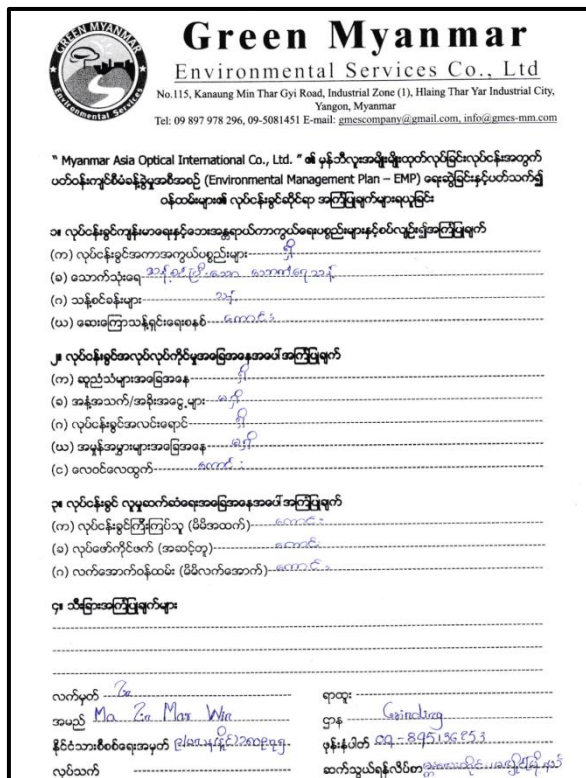 GREEN MYANMAR
Environmental Services
Green Myanmar
Environmental Services Co., Ltd
No.115, Kanaung Min Thar Gyi Road, Industrial Zone (1), Hlaing Thar Yar Industrial City,
Yangon, Myanmar
Tel: 09 897 978 296, 09-5081451 E-mail: gmescompany@gmail.com, info@gmes-mm.com
“ Myanmar Asia Optical International Co., Ltd. ” ၏ မှန်ဘီလူးအမျိုးမျိုးထုတ်လုပ်ခြင်းလုပ်ငန်းအတွက်
ပတ်ဝန်းကျင်စီမံခန့်ခွဲမှုအစီအစဉ် (Environmental Management Plan – EMP) ရေးဆွဲခြင်းနှင့်ပတ်သက်၍
ဝန်ထမ်းများ၏ လုပ်ငန်းခွင်ဆိုင်ရာ အကြံပြုချက်များရယူခြင်း
၁။ လုပ်ငန်းခွင်ကျန်းမာရေးနှင့်ဘေးအန္တရာယ်ကာကွယ်ရေးပစ္စည်းများနှင့်စပ်လျဉ်း၍အကြံပြုချက်
(က) လုပ်ငန်းခွင်အကာအကွယ်ပစ္စည်းများ ရှိ
(ခ) သောက်သုံးရေ သန့်စင်ပြီးသော သောက်ရေသန့်
(ဂ) သန့်စင်ခန်းများ သန့်
(ဃ) ဆေးကြောသန့်ရှင်းရေးစနစ် ကောင်း
၂။ လုပ်ငန်းခွင်အလုပ်လုပ်ကိုင်မှုအခြေအနေအပေါ် အကြံပြုချက်
(က) ဆူညံသံများအခြေအနေ ရှိ
(ခ) အနံ့အသက်/အခိုးအငွေ့များ မရှိ
(ဂ) လုပ်ငန်းခွင်အလင်းရောင် ရှိ
(ဃ) အမှုန်အမွှားများအခြေအနေ မရှိ
(င) လေဝင်လေထွက် ကောင်း
၃။ လုပ်ငန်းခွင် လူမှုဆက်ဆံရေးအခြေအနေအပေါ် အကြံပြုချက်
(က) လုပ်ငန်းခွင်ကြီးကြပ်သူ (မိမိအထက်) ကောင်း
(ခ) လုပ်ဖော်ကိုင်ဖက် (အဆင့်တူ) ကောင်း
(ဂ) လက်အောက်ဝန်ထမ်း (မိမိလက်အောက်) ကောင်း
၄။ သီးခြားအကြံပြုချက်များ
လက်မှတ် Zu ရာထူး
အမည် Ma Zu Mar Win ဌာန Grinding
နိုင်ငံသားစိစစ်ရေးအမှတ် ဖုန်းနံပါတ်
လုပ်သက် ဆက်သွယ်ရန်လိပ်စာ